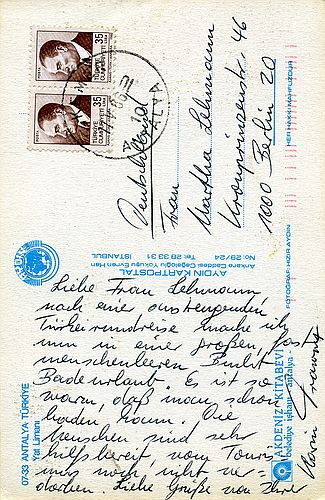 35
LİRA
TÜRKİYE
CUMHURİYETİ
35
LİRA
TÜRKİYE
CUMHURİYETİ
ALANYA
Deutschland
Frau
Martha Lehmann
Kronprinzenstr. 46
1000 Berlin 20
HER HAKKI MAHFUZDUR
FOTOGRAF: HIZIR AYDIN
AYDIN KARTPOSTAL
Ankara Caddesi Cağaloğlu Yokuşu Evren Han
No: 29/24 Tel: 28 33 31
İSTANBUL
07-33 ANTALYA TÜRKİYE
Yat Limanı
AKDENİZ KİTABEVİ
belediye işhanı - antalya
Liebe Frau Lehmann
nach einer anstrengenden
Türkeirundreise mache ich
nun in einer großen, fast
menschenleeren Bucht
Badeurlaub. Es ist so
warm, daß man schon
baden kann. Die
Menschen sind sehr
hilfsbereit, vom Touris-
mus noch nicht ver-
dorben. Liebe Grüße von Ihrer